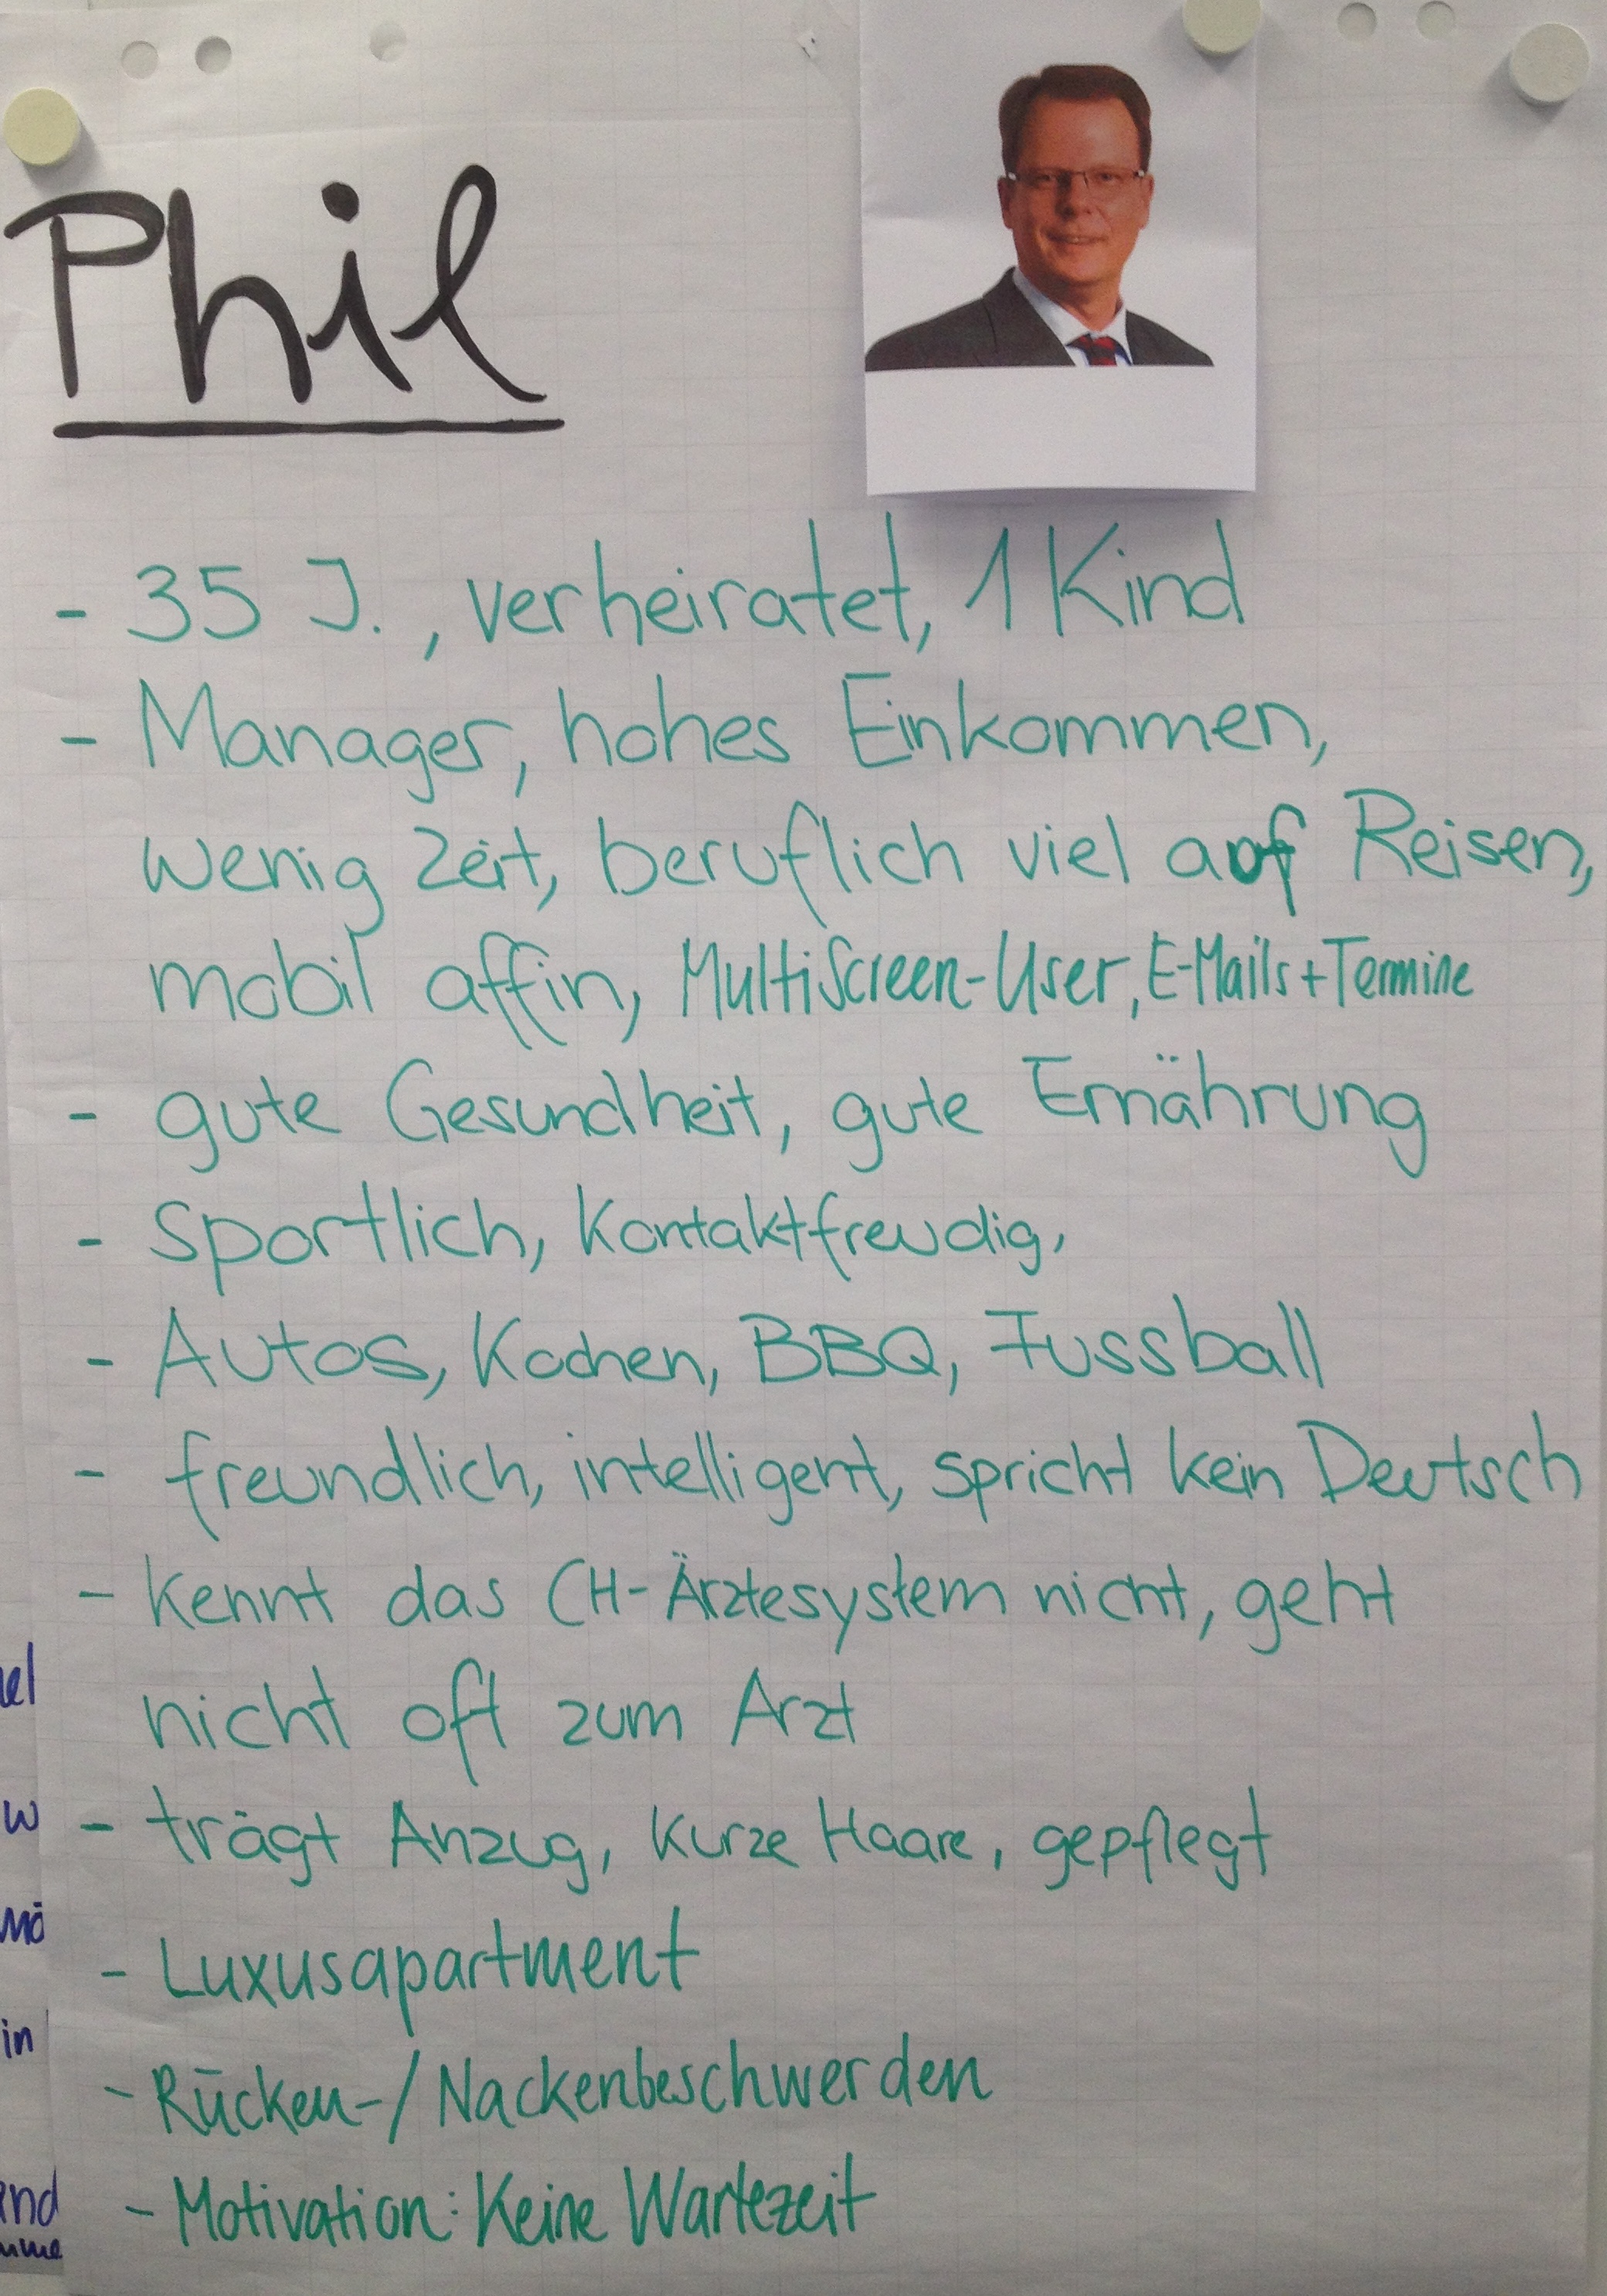 Phil
- 35 J., verheiratet, 1 Kind
- Manager, hohes Einkommen,
wenig Zeit, beruflich viel auf Reisen,
mobil affin, MultiScreen-User, E-Mails + Termine
- gute Gesundheit, gute Ernährung
- Sportlich, Kontaktfreudig,
- Autos, Kochen, BBQ, Fussball
- freundlich, intelligent, spricht kein Deutsch
- kennt das CH-Ärztesystem nicht, geht
nicht oft zum Arzt
- trägt Anzug, kurze Haare, gepflegt
- Luxusapartment
- Rücken-/Nackenbeschwerden
- Motivation: Keine Wartezeit